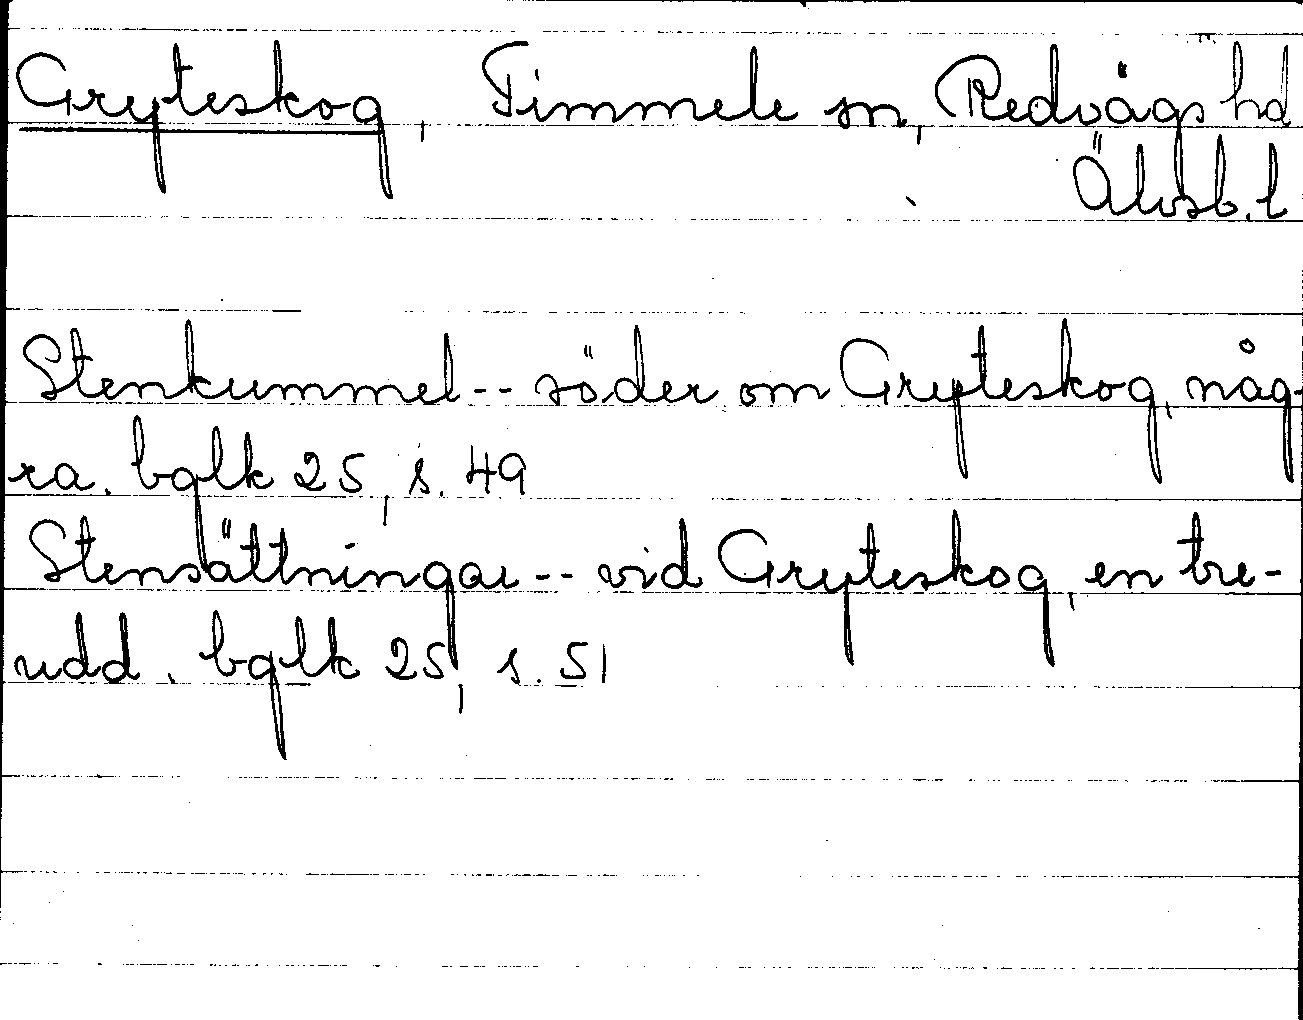 Gryteskog, Timmele sn, Redvägs hd
Älvsb.l
Stenkummel -- söder om Gryteskog, någ-
ra. bglk 25, s. 49
Stensättningar -- vid Gryteskog, en tre-
udd. bglk 25, s. 51